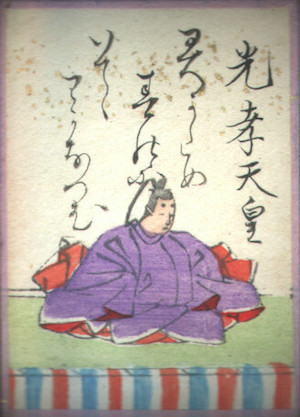 光孝天皇
君かため
春の野に
いてゝ
わかなつむ